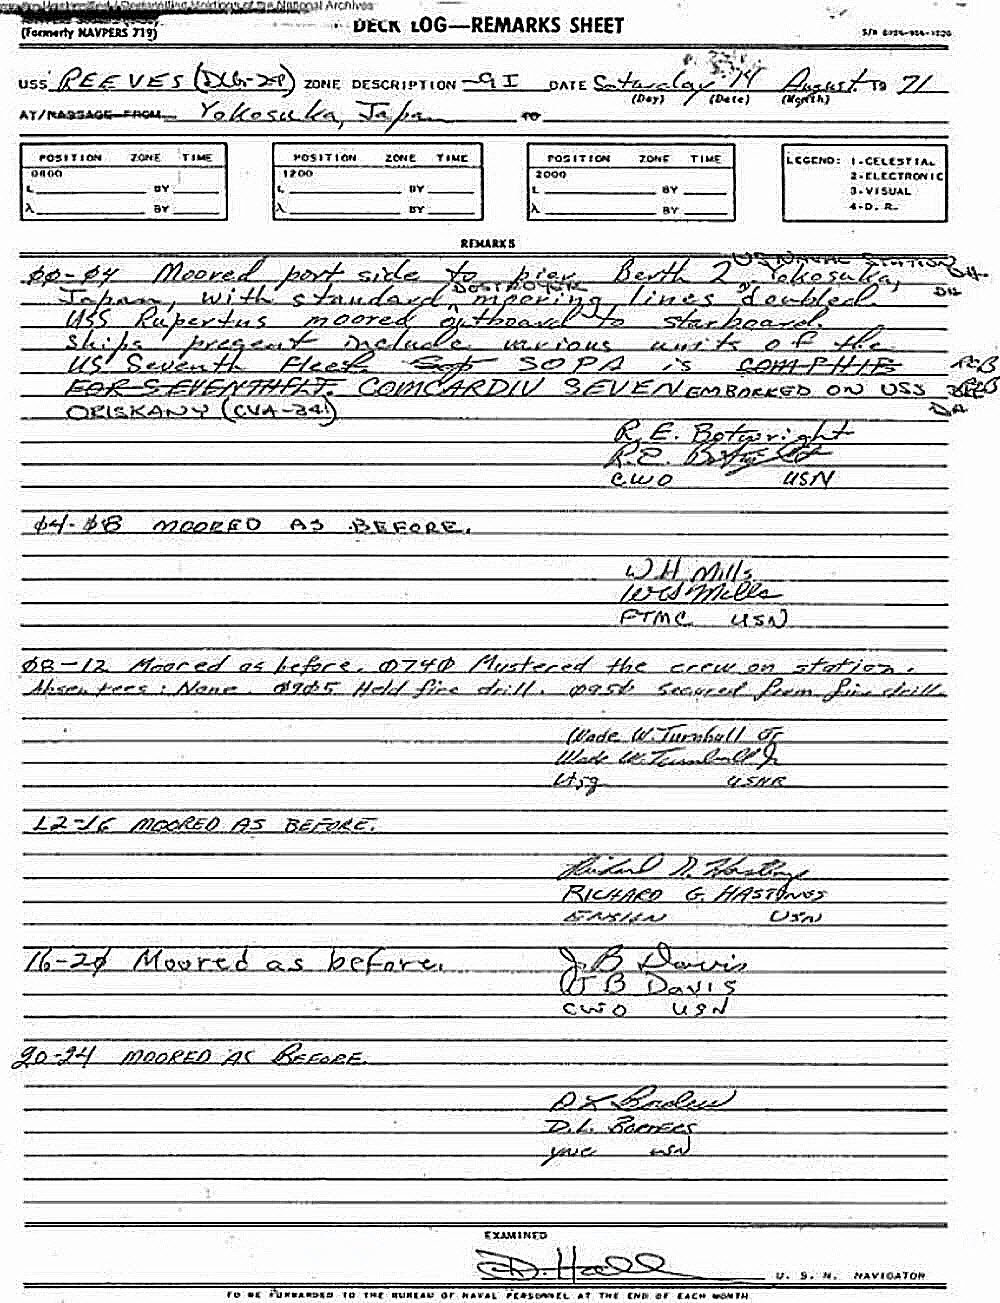 Holdings of the National Archives
(Formerly NAVPERS 719)
DECK LOG—REMARKS SHEET
USS REEVES (DLG-24) ZONE DESCRIPTION -9 I DATE Saturday 14 August 19 71
(Day) (Date) (Month)
AT/PASSAGE FROM Yokosuka, Japan TO
POSITION ZONE TIME
0800
L BY
λ BY
POSITION ZONE TIME
1200
L BY
λ BY
POSITION ZONE TIME
2000
L BY
λ BY
LEGEND: 1-CELESTIAL
2-ELECTRONIC
3-VISUAL
4-D. R.
REMARKS
US NAVAL STATION
00-04 Moored port side to pier Berth 2, Yokosuka,
DESTROYER
Japan, with standard mooring lines doubled.
USS Rupertus moored outboard to starboard.
Ships present include various units of the
US Seventh Fleet. SOPA is COMPHIB
FOR SEVENTHFLT. COMCARDIV SEVEN EMBARKED ON USS
ORISKANY (CVA-34)
R. E. Botwright
R.E. Botwright
CWO USN
04-08 MOORED AS BEFORE.
W H Mills
WH Mills
FTMC USN
08-12 Moored as before. 0740 Mustered the crew on station.
Absentees: None. 0905 Held fire drill. 0950 secured from fire drill
Wade W. Turnbull Jr
Wade W. Turnbull Jr
Ltjg USNR
12-16 MOORED AS BEFORE.
Richard G. Hastings
RICHARD G. HASTINGS
ENSIGN USN
16-20 Moored as before.
J B Davis
J B DAVIS
CWO USN
20-24 MOORED AS BEFORE.
D L
D.L.
YNC USN
EXAMINED
U. S. N. NAVIGATOR
TO BE FORWARDED TO THE BUREAU OF NAVAL PERSONNEL AT THE END OF EACH MONTH